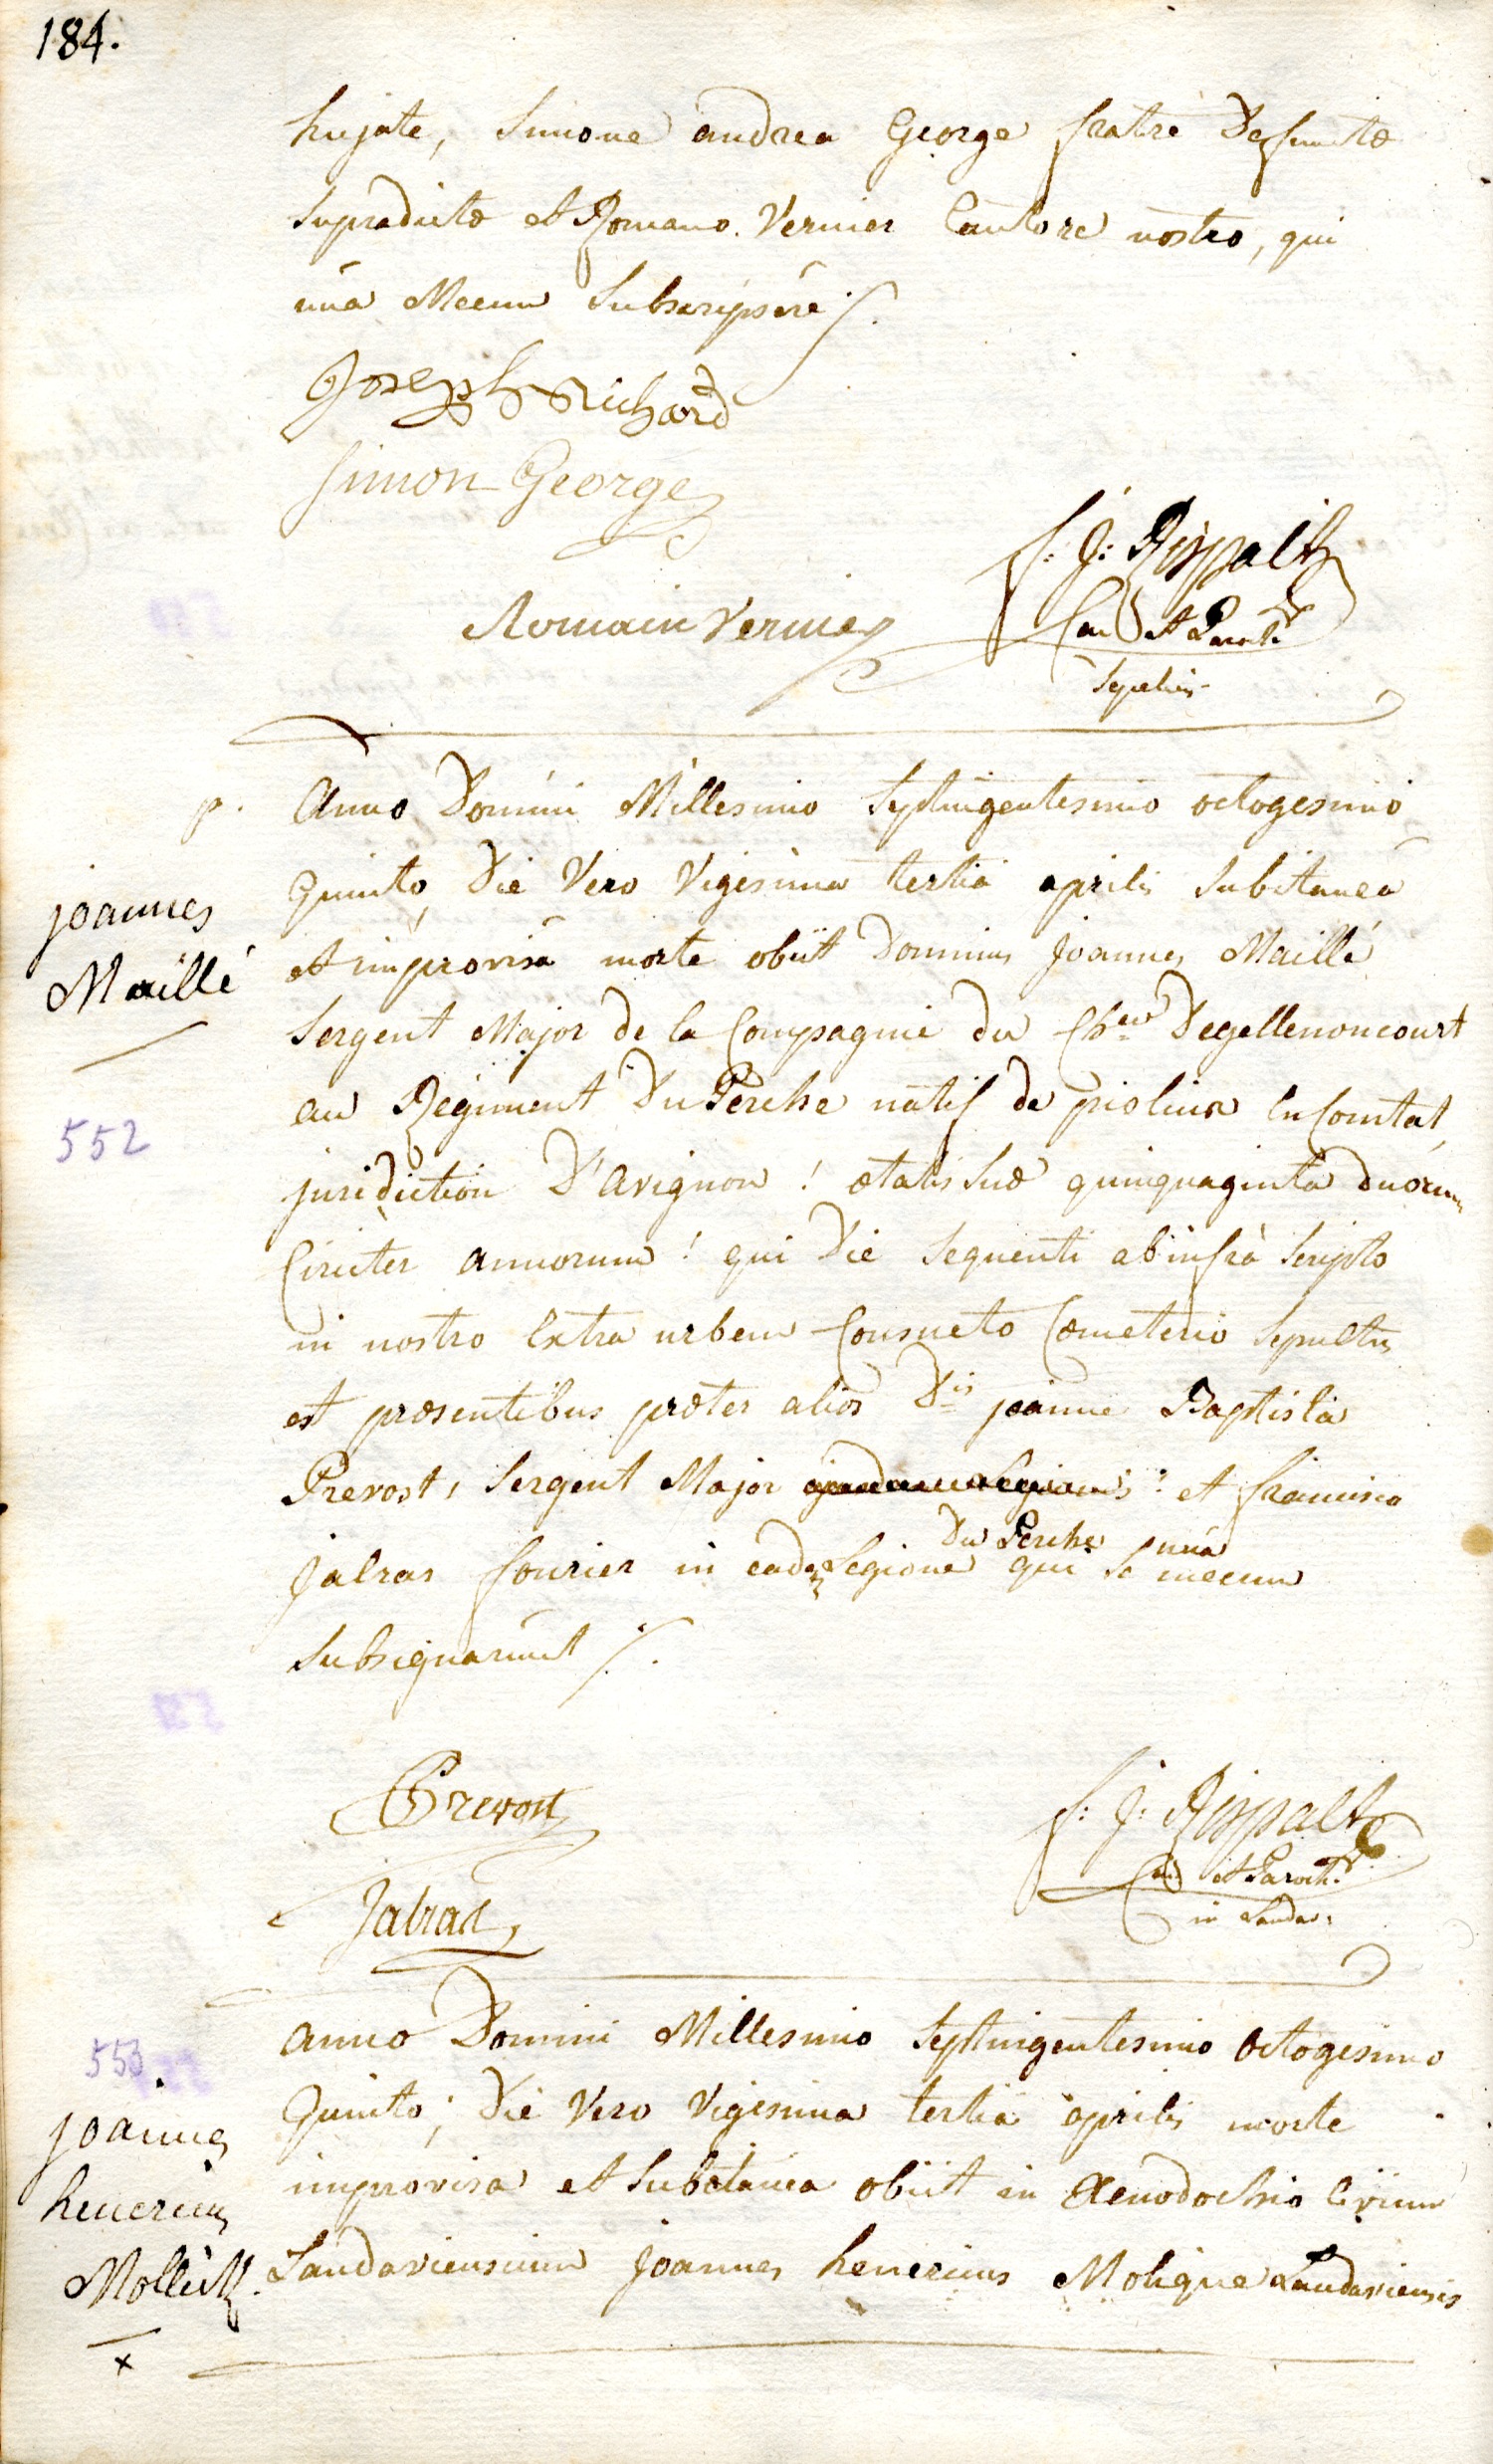 184.
hujate, Simone andrea George fratre Defunctæ
supradictæ et Romano Vernier Cantore nostro, qui
unà Mecum Subscripsêre ./.
Joseph Richard
Simon George
f: J: Rispalt
Romain Vernier
Can et Paroch.
Sepeliens
p. Anno Domini Millesimo Septingentesimo octogesimo
Quinto, Die Vero Vigesima tertiâ aprilis subitaneâ
joannes
et improvisâ morte obiit Dominus Joannes Maillé
Maillé
Sergent Major de la Compagnie du Cher Degellenoncourt
au Regiment Du Perche natif de piolinx en Comtat,
552
jurisdiction D'avignon ! ætatis suæ quinquaginta duorum
Circiter annorum ! qui Die sequenti ab infrà scripto
in nostro Extra urbem Consueto Cœmeterio sepultus
est præsentibus præter alios Dis joanne Baptistâ
Prevost, Sergent Major : et francisco
du Perche unà
Jalras fourier in eadem Legione qui se mecum
Subsignarunt ./.
Prevost
f: J: Rispalt
Can et Paroch.
Jalras
in Landau.
anno Domini Millesimo Septingentesimo Octogesimo
553
Quinto; Die Vero Vigesima tertiâ aprilis morte
joannes
improvisa et Subitanea obiit in Xenodochio Civium
henericus
Landaviensium Joannes henericus Molique Landaviensis
x